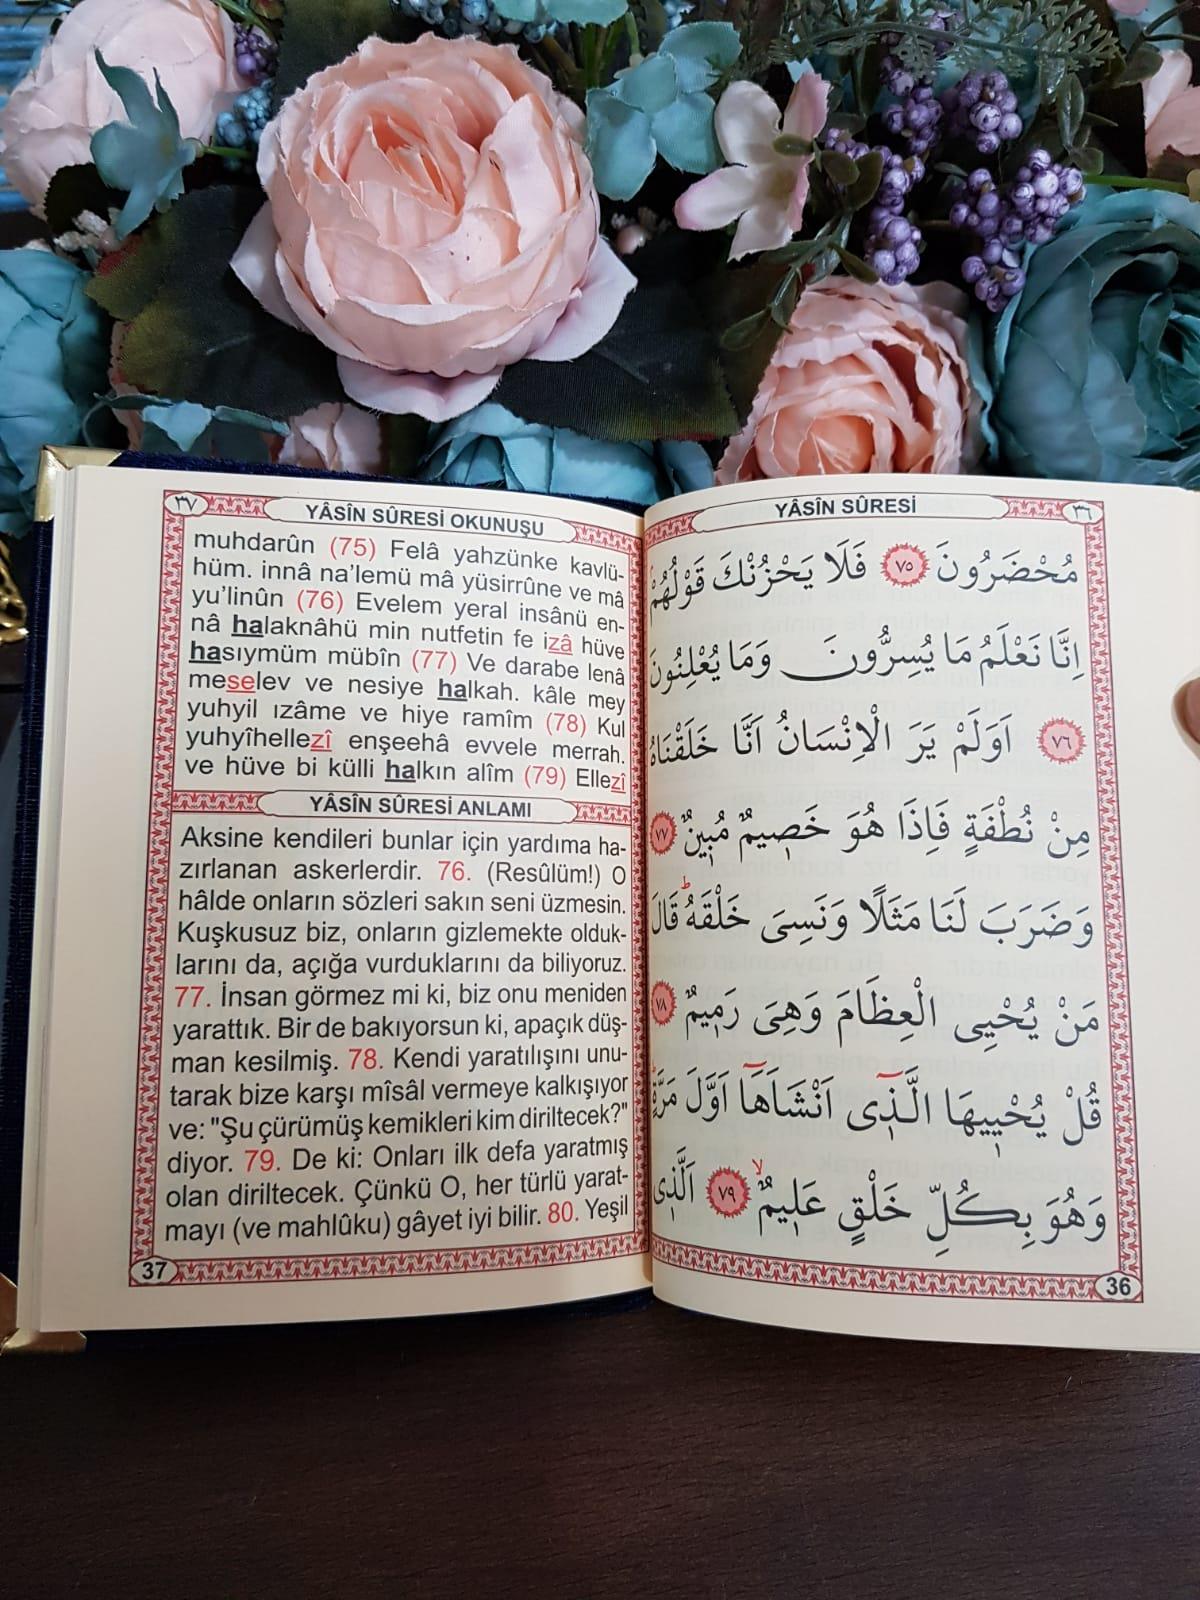 ٣٧
YÂSÎN SÛRESİ OKUNUŞU
muhdarûn (75) Felâ yahzünke kavlü-
hüm. innâ na’lemü mâ yüsirrûne ve mâ
yu’linûn (76) Evelem yeral insânü en-
nâ halaknâhü min nutfetin fe izâ hüve
hasıymüm mübîn (77) Ve darabe lenâ
meselev ve nesiye halkah. kâle mey
yuhyil ızâme ve hiye ramîm (78) Kul
yuhyîhellezî enşeehâ evvele merrah.
ve hüve bi külli halkın alîm (79) Ellezî
YÂSÎN SÛRESİ ANLAMI
Aksine kendileri bunlar için yardıma ha-
zırlanan askerlerdir. 76. (Resûlüm!) O
hâlde onların sözleri sakın seni üzmesin.
Kuşkusuz biz, onların gizlemekte olduk-
larını da, açığa vurduklarını da biliyoruz.
77. İnsan görmez mi ki, biz onu meniden
yarattık. Bir de bakıyorsun ki, apaçık düş-
man kesilmiş. 78. Kendi yaratılışını unu-
tarak bize karşı mîsâl vermeye kalkışıyor
ve: "Şu çürümüş kemikleri kim diriltecek?"
diyor. 79. De ki: Onları ilk defa yaratmış
olan diriltecek. Çünkü O, her türlü yarat-
mayı (ve mahlûku) gâyet iyi bilir. 80. Yeşil
37
YÂSÎN SÛRESİ
٣٦
مُحْضَرُونَ ٧٥ فَلَا يَحْزُنْكَ قَوْلُهُمْۘ
اِنَّا نَعْلَمُ مَا يُسِرُّونَ وَمَا يُعْلِنُونَ
٧٦ اَوَلَمْ يَرَ الْاِنْسَانُ اَنَّا خَلَقْنَاهُ
مِنْ نُطْفَةٍ فَاِذَا هُوَ خَصِيمٌ مُبِينٌ ٧٧
وَضَرَبَ لَنَا مَثَلًا وَنَسِىَ خَلْقَهُۜ قَالَ
مَنْ يُحْيِى الْعِظَامَ وَهِىَ رَمِيمٌ ٧٨
قُلْ يُحْيِيهَا الَّذِٓى اَنْشَاَهَٓا اَوَّلَ مَرَّةٍۜ
وَهُوَ بِكُلِّ خَلْقٍ عَلِيمٌۙ ٧٩ اَلَّذِى
36